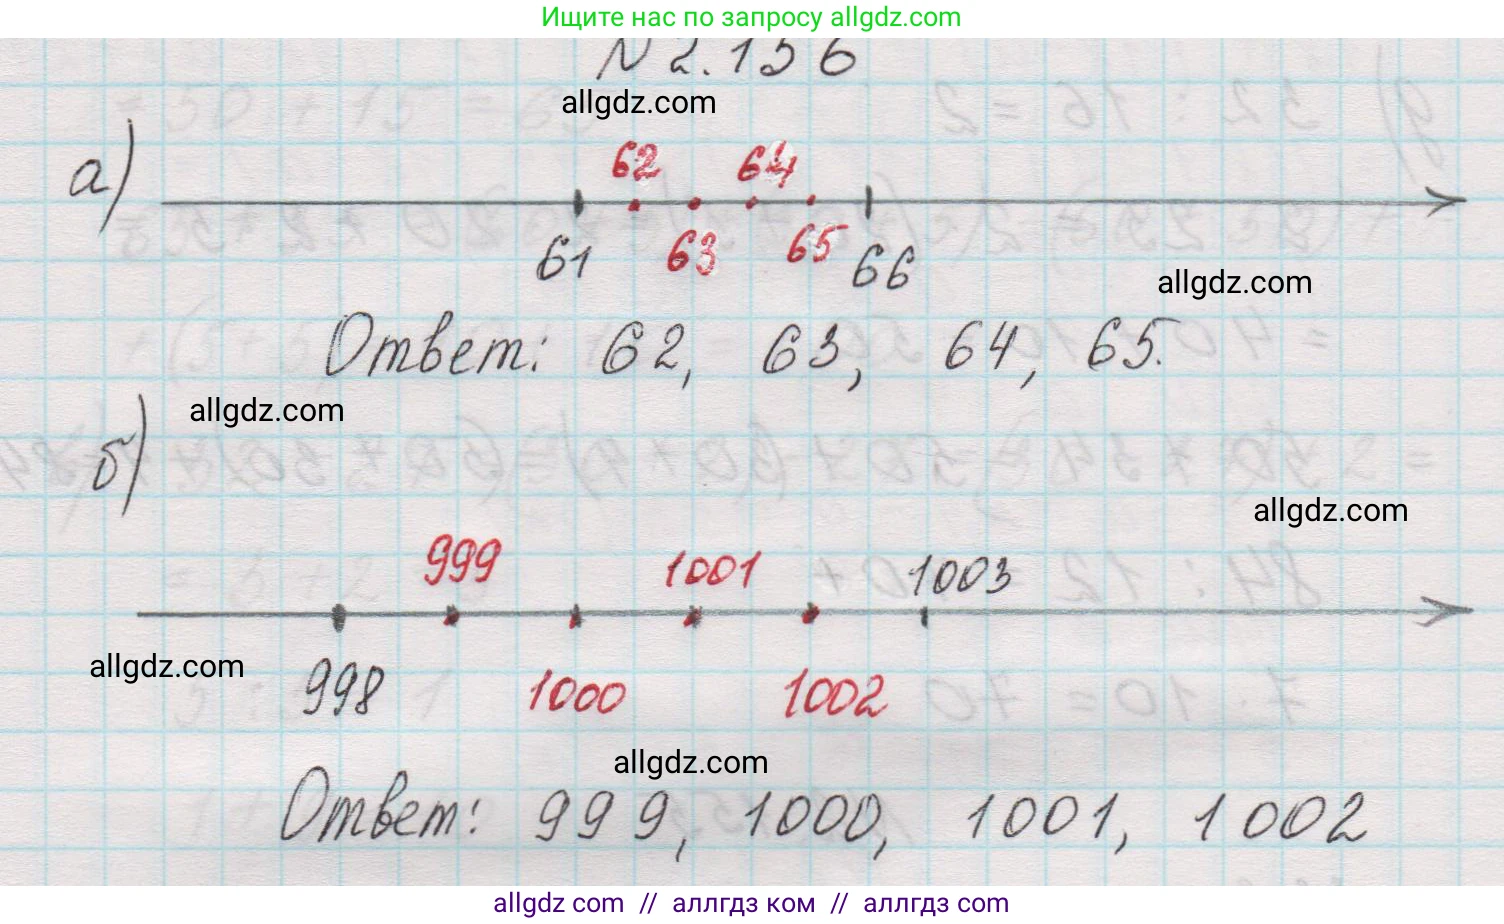 Ищите нас по запросу allgdz.com
N 2.156
allgdz.com
а)
62 64
61 63 65 66
allgdz.com
Ответ: 62, 63, 64, 65.
allgdz.com
б)
allgdz.com
999 1001 1003
allgdz.com
998 1000 1002
allgdz.com
Ответ: 999, 1000, 1001, 1002
allgdz com // аллгдз ком // аллгдз com